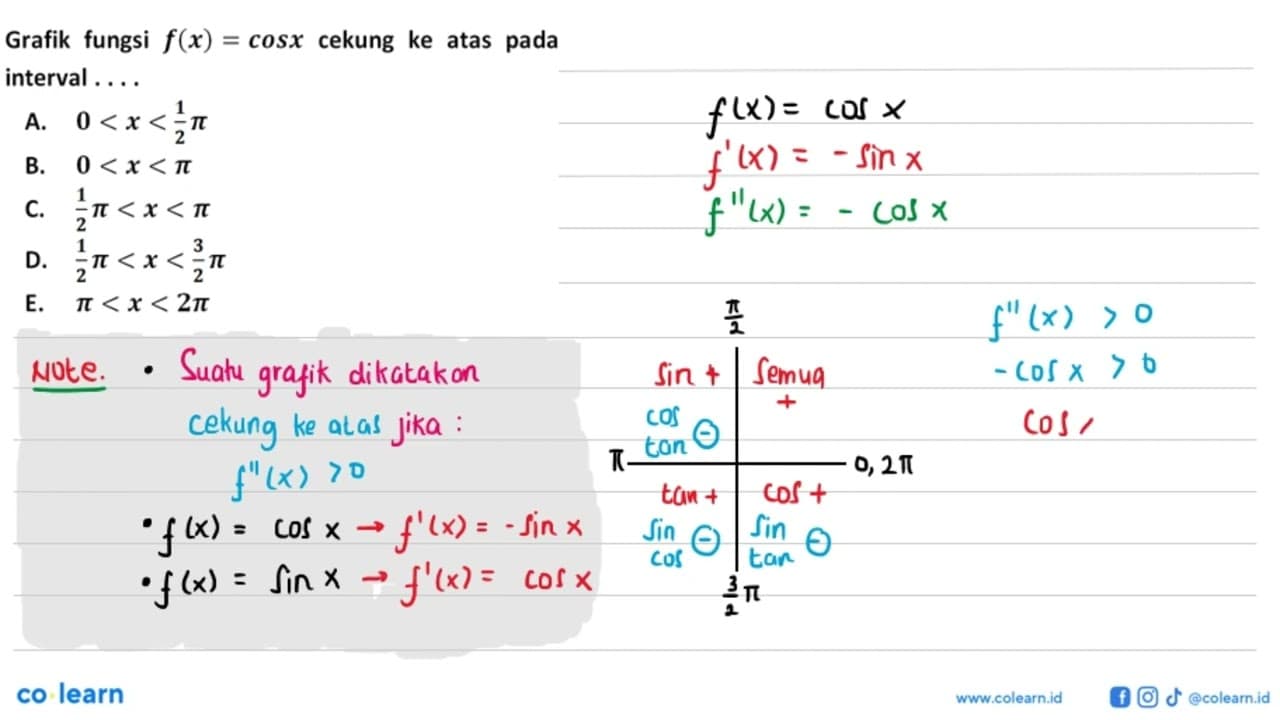 Grafik fungsi f(x) = cosx cekung ke atas pada
interval . . . .
A. 0 < x < 1/2 π
B. 0 < x < π
C. 1/2 π < x < π
D. 1/2 π < x < 3/2 π
E. π < x < 2π
f(x) = cos x
f'(x) = - sin x
f''(x) = - cos x
Note. • Suatu grafik dikatakan
cekung ke atas jika :
f''(x) > 0
• f(x) = cos x → f'(x) = - sin x
• f(x) = sin x → f'(x) = cos x
π/2
sin + Semua
+
cos
tan ⊖
π 0, 2π
tan + cos +
sin ⊖ sin ⊖
cos tan
3/2 π
f''(x) > 0
- cos x > 0
cos
co learn
www.colearn.id @colearn.id